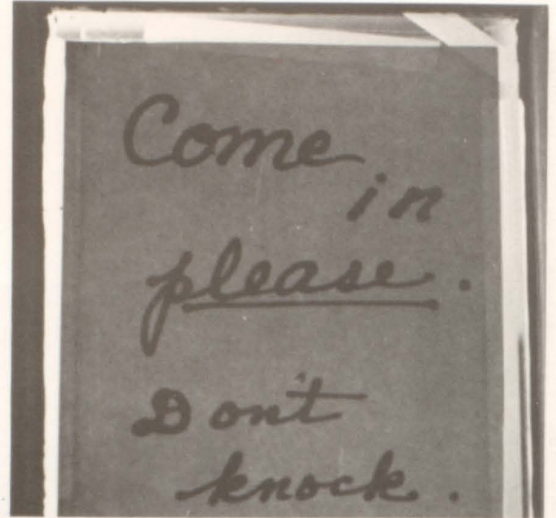 Come
in
please.
Don't
knock.